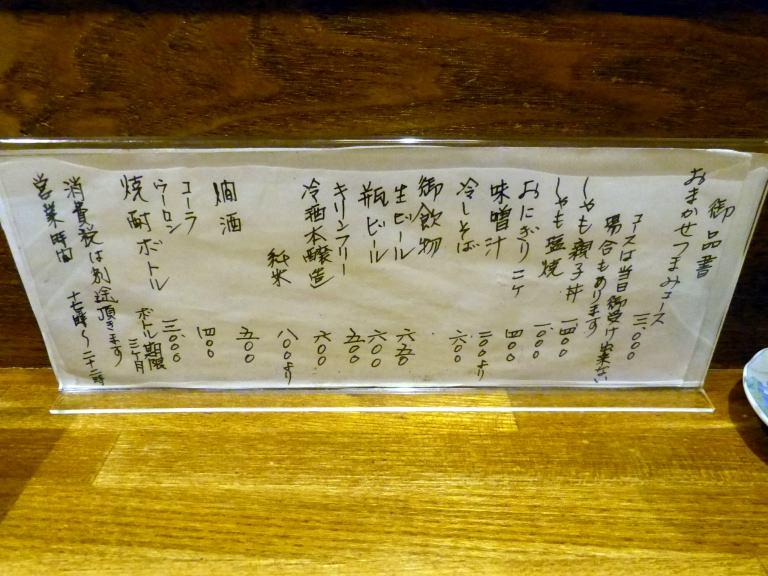 御品書
おまかせつまみコース 三、〇〇〇
コースは当日御受け出来ない
場合もあります
しゃも親子丼 一、四〇〇
しゃも塩焼 一、〇〇〇
おにぎり 二ケ 四〇〇
味噌汁 二〇〇より
冷しそば 六〇〇
御飲物
生ビール 六五〇
瓶ビール 六〇〇
キリンフリー 五〇〇
冷酒本醸造 六〇〇
純米 八〇〇より
燗酒 五〇〇
コーラ
ウーロン 四〇〇
焼酎ボトル 三、〇〇〇
ボトル期限
三ケ月
消費税は別途頂きます
営業時間 十七時〜二十三時